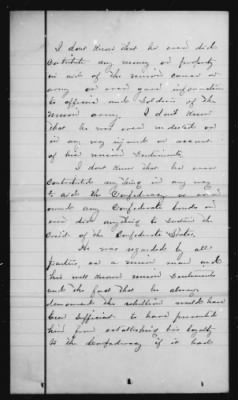 I dont know that he ever did
Contribute any money or property
in aid of the union cause or
army or ever gave information
to officers and Soldiers of the
union army. I dont know
that he was ever molested or
in any way injured on account
of his union Sentiments.
I dont know that he ever
contributed anything in any way
to aid the Confederacy
owned any Confederate bonds or
ever did anything to Sustain the
Credit of the Confederate States.
He was regarded by all
parties as a union man and
his well known union Sentiments
and the fact that he always
denounced the rebellion would have
been Sufficient to have prevented
him from establishing his loyalty
to the Confederacy if it had